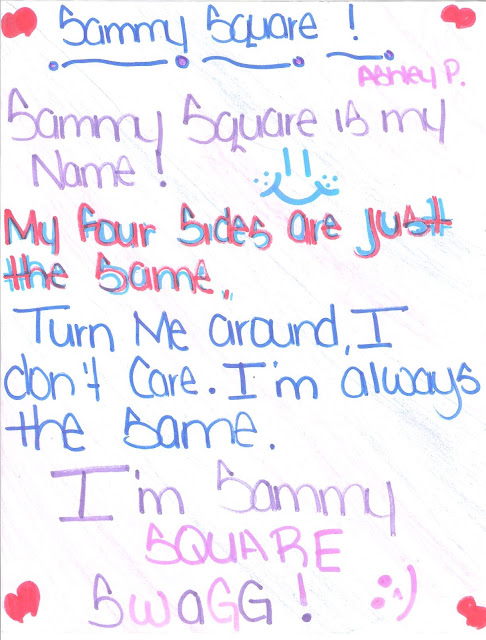 Sammy Square !
Ashley P.
Sammy Square is my
Name !
My four Sides are just
the Same.
Turn Me around, I
don't Care. I'm always
the same.
I'm Sammy
SQUARE
SWaGG ! :)